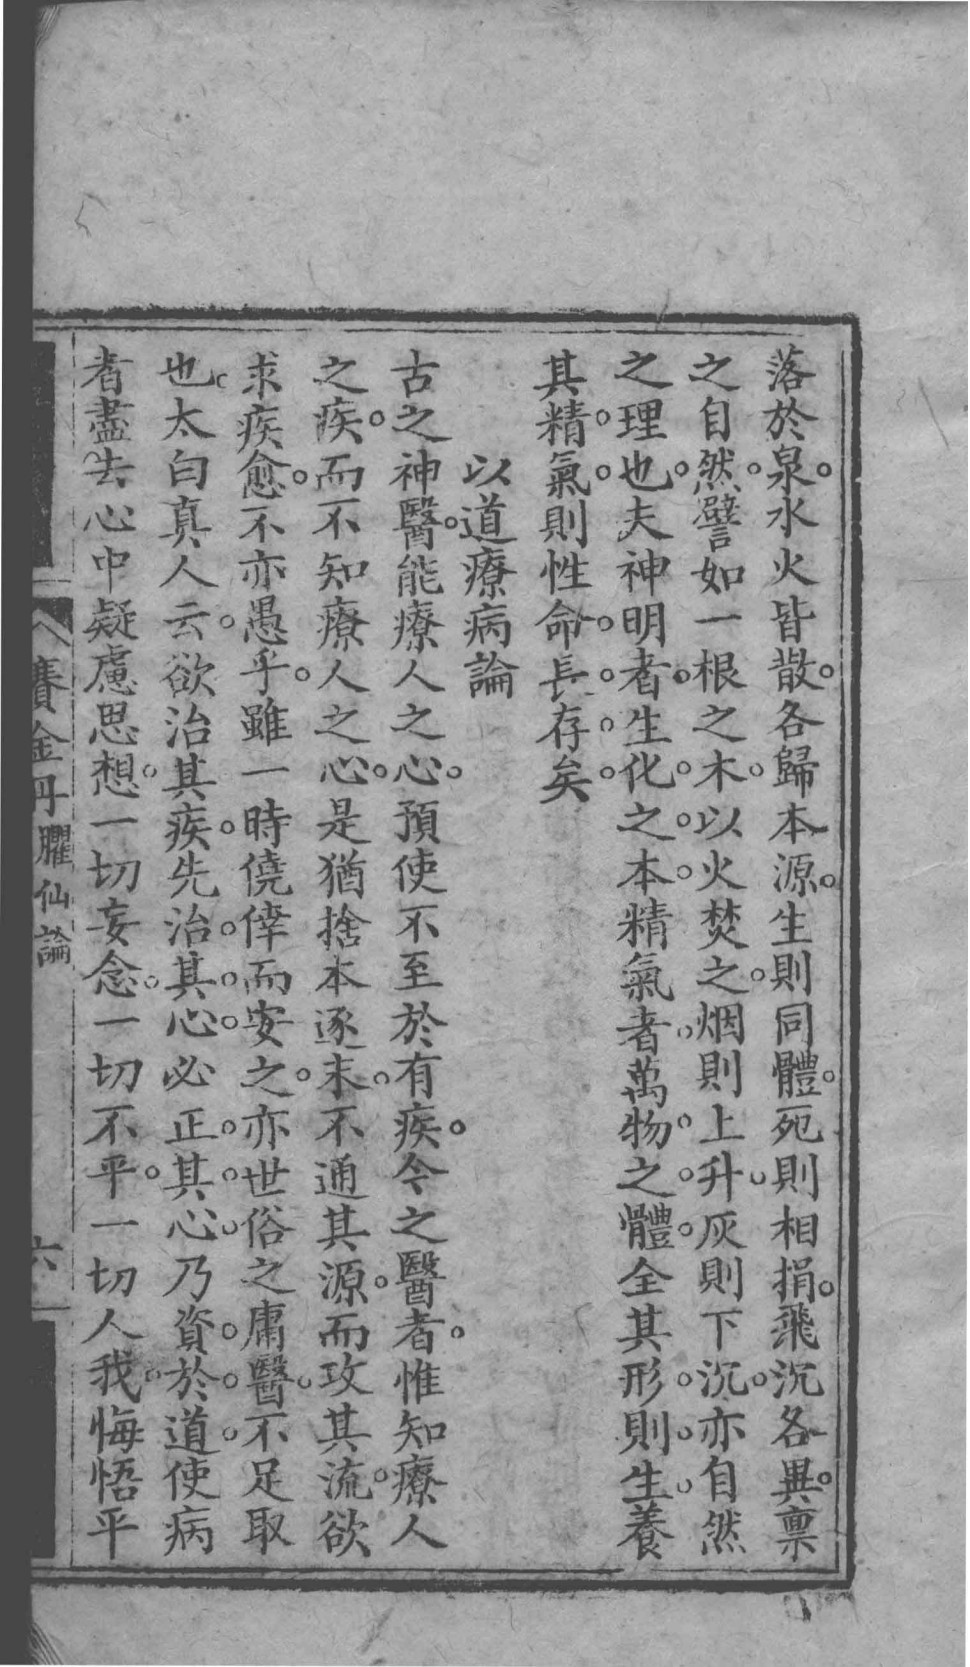 落於泉水火皆散各歸本源生則同體死則相捐飛沉各異稟
之自然譬如一根之木以火焚之烟則上升灰則下沉亦自然
之理也夫神明者生化之本精氣者萬物之體全其形則生養
其精氣則性命長存矣
以道療病論
古之神醫能療人之心預使不至於有疾今之醫者惟知療人
之疾而不知療人之心是猶捨本逐末不通其源而攻其流欲
求疾愈不亦愚乎雖一時僥倖而安之亦世俗之庸醫不足取
也太白真人云欲治其疾先治其心必正其心乃資於道使病
者盡去心中疑慮思想一切妄念一切不平一切人我悔悟平
賽金丹 臞仙論 六